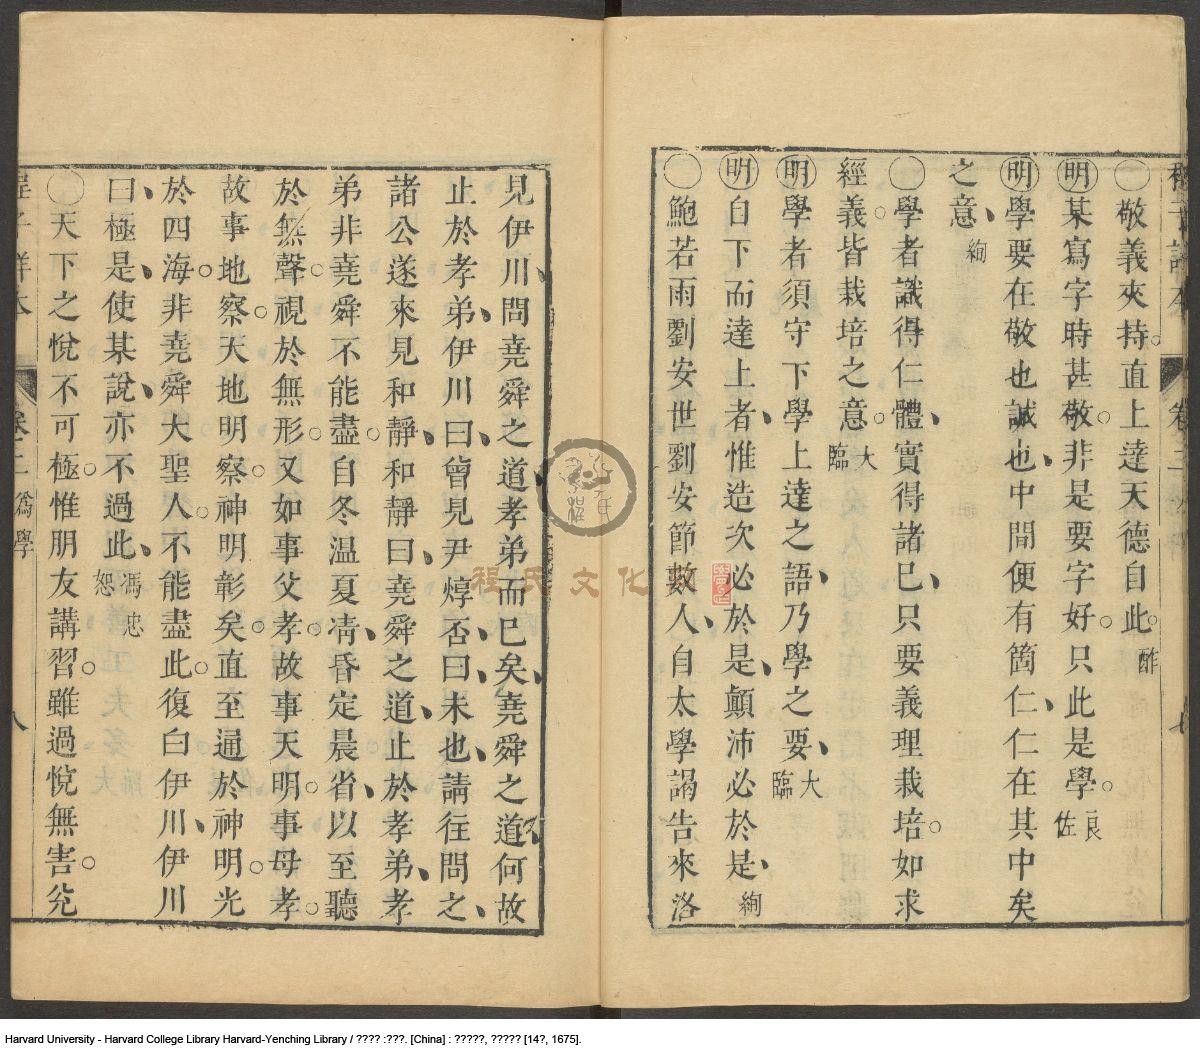 ○敬義夾持直上達天德自此 酢
明某寫字時甚敬非是要字好只此是學 良佐
明學要在敬也誠也中間便有箇仁仁在其中矣
之意 絢
○學者識得仁體實得諸己只要義理栽培如求
經義皆栽培之意 大臨
明學者須守下學上達之語乃學之要 大臨
明自下而達上者惟造次必於是顛沛必於是 絢
○鮑若雨劉安世劉安節數人自太學謁告來洛
見伊川問堯舜之道孝弟而已矣堯舜之道何故
止於孝弟伊川曰曾見尹焞否曰未也請往問之
諸公遂來見和靜和靜曰堯舜之道止於孝弟孝
弟非堯舜不能盡自冬溫夏凊昏定晨省以至聽
於無聲視於無形又如事父孝故事天明事母孝
故事地察天地明察神明彰矣直至通於神明光
於四海非堯舜大聖人不能盡此復白伊川伊川
曰極是使某說亦不過此 馮忠恕
○天下之悅不可極惟朋友講習雖過悅無害兌
卷二 為學 八
程氏文化
Harvard University - Harvard College Library Harvard-Yenching Library / ???? :???. [China] : ?????, ????? [14?, 1675].